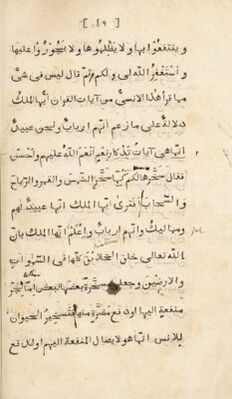 [ ٤٦ ]
و ينتفعوا بها ولا يظلموها ولا يجوروا عليها
و أستغفر الله لى و لكم ثم قال ليس فى شئ
مما قرأ هذا الانسى من آيات القرآن أيها الملك
دلالة على ما زعم انهم ارباب و نحن عبيد
انما هى آيات تذكار نعم انعم الله عليهم و احسن
فقال سخرها لكم كما سخر الشمس والقمر والرياح
والسحاب افترى ايها الملك انها عبيد لهم
ومماليك و انهم ارباب و اعلم ايها الملك بان
الله تعالى خلق الخلائق كلها فى السموات
والارضين وجعلها مسخرة بعضها لبعض اما لجر
منفعة اليها او دفع مضرة منها فتسخير الحيوان
للانس انما هو لايصال المنفعة اليهم او لدفع